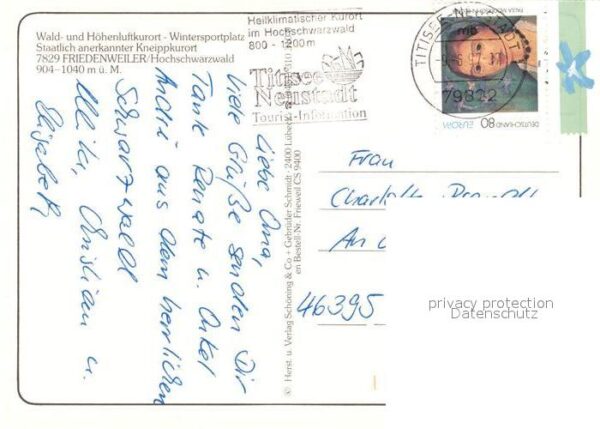 Wald- und Höhenluftkurort - Wintersportplatz
Staatlich anerkannter Kneippkurort
7829 FRIEDENWEILER/Hochschwarzwald
904–1040 m ü. M.
Heilklimatischer Kurort
im Hochschwarzwald
800 - 1200 m
Titisee
Neustadt
Tourist-Information
TITISEE-NEUSTADT 1
mb
79822
DEUTSCHLAND EUROPA 80
Liebe Oma,
viele Grüße senden Dir
Tante Renate u. Onkel
André aus dem herrlichen
Schwarzwald
Christian u.
Elisabeth
© Herst. u. Verlag Schöning & Co + Gebrüder Schmidt · 2400 Lübeck
en Bestell-Nr. Frieweil CS 9400
Frau
An
46395
privacy protection
Datenschutz